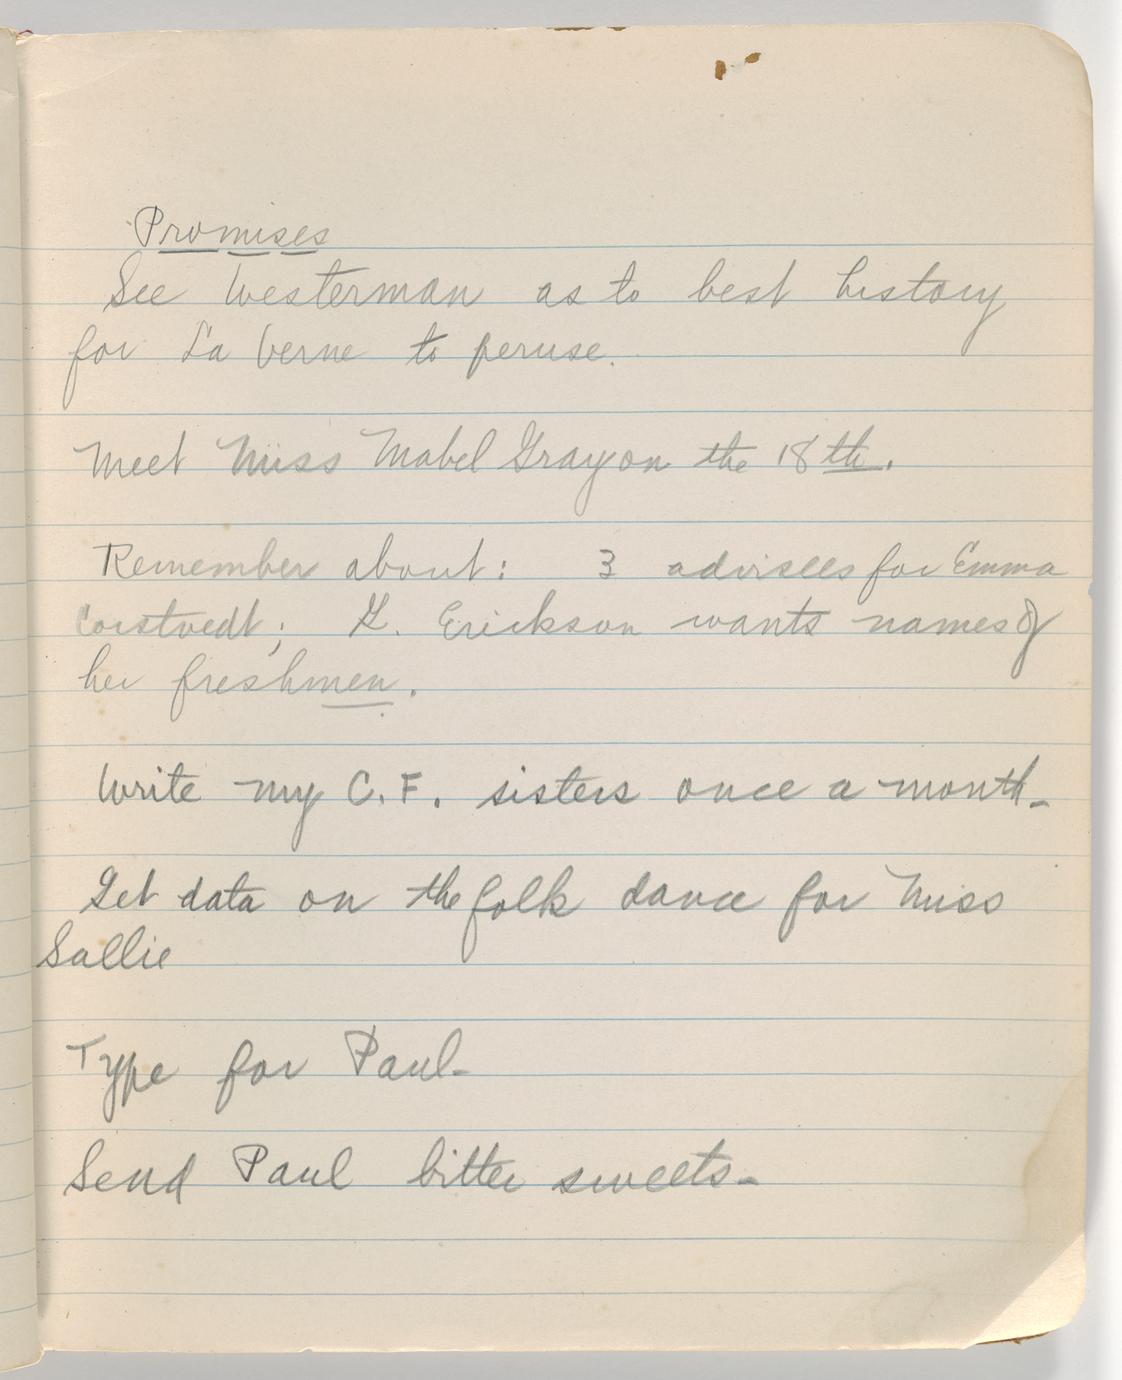 Promises
See Westerman as to best history
for La Verne to peruse.
Meet Miss Mabel Gray on the 18th.
Remember about: 3 advisees for Emma
Corstvedt; G. Erickson wants names of
her freshmen.
Write my C.F. sisters once a month-
Get data on the folk dance for Miss
Sallie
Type for Paul-
Send Paul bitter sweets-